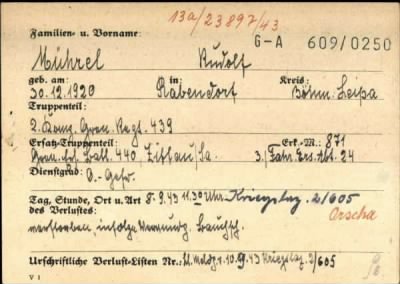 13a/23897/43
Familien- u. Vorname
G-A 609/0250
Mührel Rudolf
geb. am: in: Kreis:
30.12.1920 Rabendorf Böhm. Leipa
Truppenteil:
2. Komp. Gren. Regt. 439
Ersatz-Truppenteil: Erk.-M.: 871
Gren. Ers. Batl. 440, Zittau/Sa. 3./Fahr. Ers. Abt. 24
Dienstgrad:
O.-Gefr.
Tag, Stunde, Ort u. Art 8.9.43 11.30 Uhr Kriegslaz. 2/605
des Verlustes: Orscha
verstorben, infolge Verwundg. Bauchsch.
Urschriftliche Verlust-Listen Nr.: N. Meldg. v. 10.9.43 Kriegslaz. 2/605
V 1